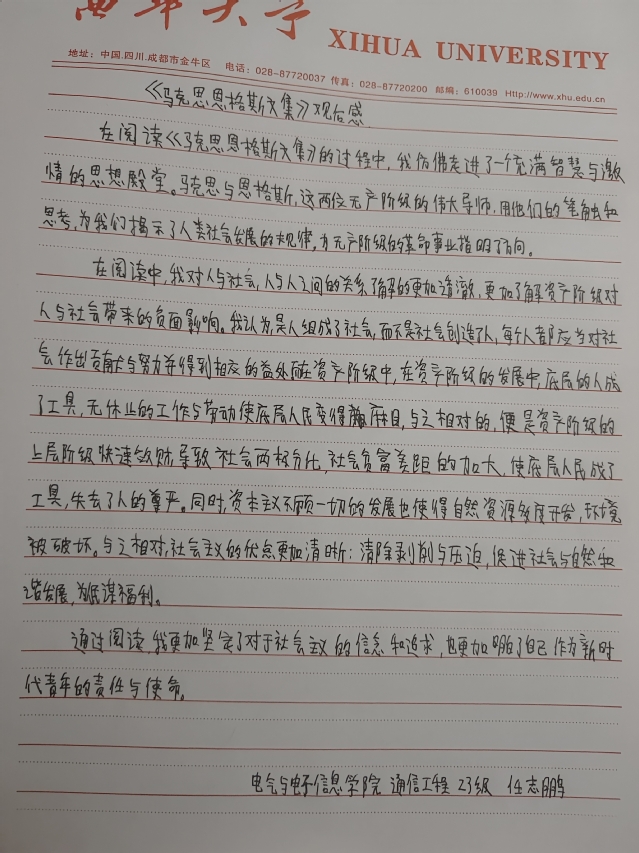 西华大学
XIHUA UNIVERSITY
地址：中国.四川.成都市金牛区 电话：028-87720037 传真：028-87720200 邮编：610039 Http://www.xhu.edu.cn
《马克思恩格斯文集》观后感
在阅读《马克思恩格斯文集》的过程中，我仿佛走进了一个充满智慧与激
情的思想殿堂。马克思与恩格斯，这两位无产阶级的伟大导师，用他们的笔触和
思考，为我们揭示了人类社会发展的规律，为无产阶级的革命事业指明了方向。
在阅读中，我对人与社会，人与人之间的关系了解的更加清澈，更加了解资产阶级对
人与社会带来的负面影响。我认为，是人组成了社会，而不是社会创造了人，每个人都应当对社
会作出贡献与努力并得到相应的益处，而在资产阶级中，在资产阶级的发展中，底层的人成
了工具，无休止的工作与劳动使底层人民变得麻目，与之相对的，便是资产阶级的
上层阶级快速敛财，导致社会两极分化，社会贫富差距的加大，使底层人民成了
工具，失去了人的尊严。同时，资本主义不顾一切的发展也使得自然资源过度开发，环境
被破坏。与之相对，社会主义的优点更加清晰：清除剥削与压迫，促进社会与自然和
谐发展，为民谋福利。
通过阅读，我更加坚定了对于社会主义的信念和追求，也更加明白了自己作为新时
代青年的责任与使命。
电气与电子信息学院 通信工程 23级 任志鹏